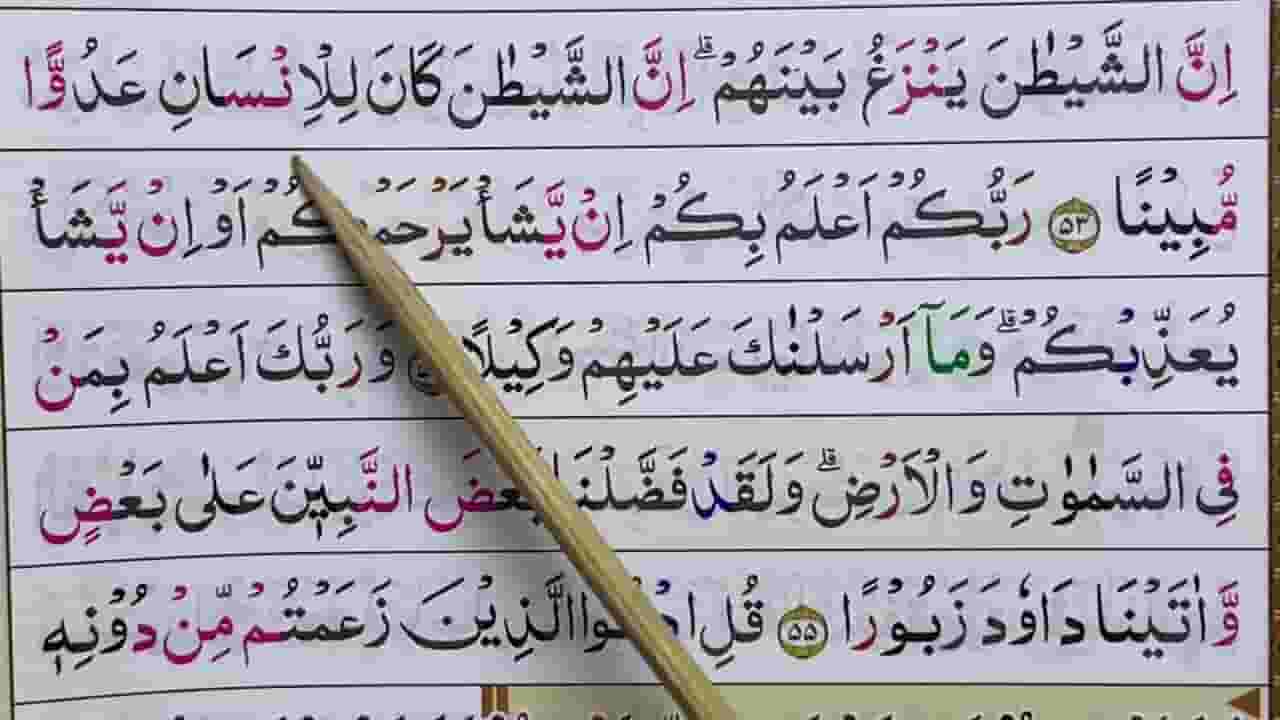 اِنَّ الشَّيْطٰنَ يَنْزَغُ بَيْنَهُمْ ۗ اِنَّ الشَّيْطٰنَ كَانَ لِلْاِنْسَانِ عَدُوًّا
مُّبِيْنًا ۵۳ رَبُّكُمْ اَعْلَمُ بِكُمْ اِنْ يَّشَاْ يَرْحَمْكُمْ اَوْ اِنْ يَّشَاْ
يُعَذِّبْكُمْ ۗ وَمَآ اَرْسَلْنٰكَ عَلَيْهِمْ وَكِيْلًا وَرَبُّكَ اَعْلَمُ بِمَنْ
فِى السَّمٰوٰتِ وَالْاَرْضِ ۗ وَلَقَدْ فَضَّلْنَا بَعْضَ النَّبِيّٖنَ عَلٰى بَعْضٍ
وَّاٰتَيْنَا دَاوٗدَ زَبُوْرًا ۵۵ قُلِ ادْعُوا الَّذِيْنَ زَعَمْتُمْ مِّنْ دُوْنِهٖ